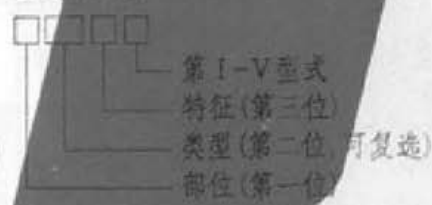 第Ⅰ-Ⅴ型式
特征(第三位)
类型(第二位,可复选)
部位(第一位)